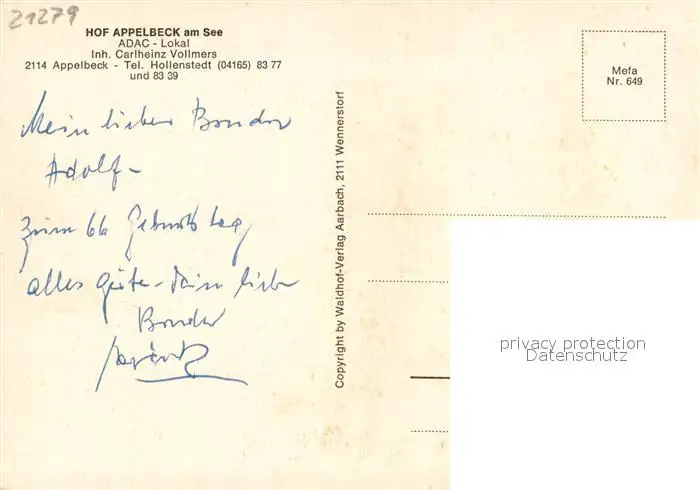 21279
HOF APPELBECK am See
ADAC - Lokal
Inh. Carlheinz Vollmers
2114 Appelbeck - Tel. Hollenstedt (04165) 83 77
und 83 39
Mein lieber Bruder
Adolf -
Zum 66 Geburtstag
alles Gute - Dein lieber
Bruder
Copyright by Waldhof-Verlag Aarbach, 2111 Wennerstorf
Mefa
Nr. 649
privacy protection
Datenschutz